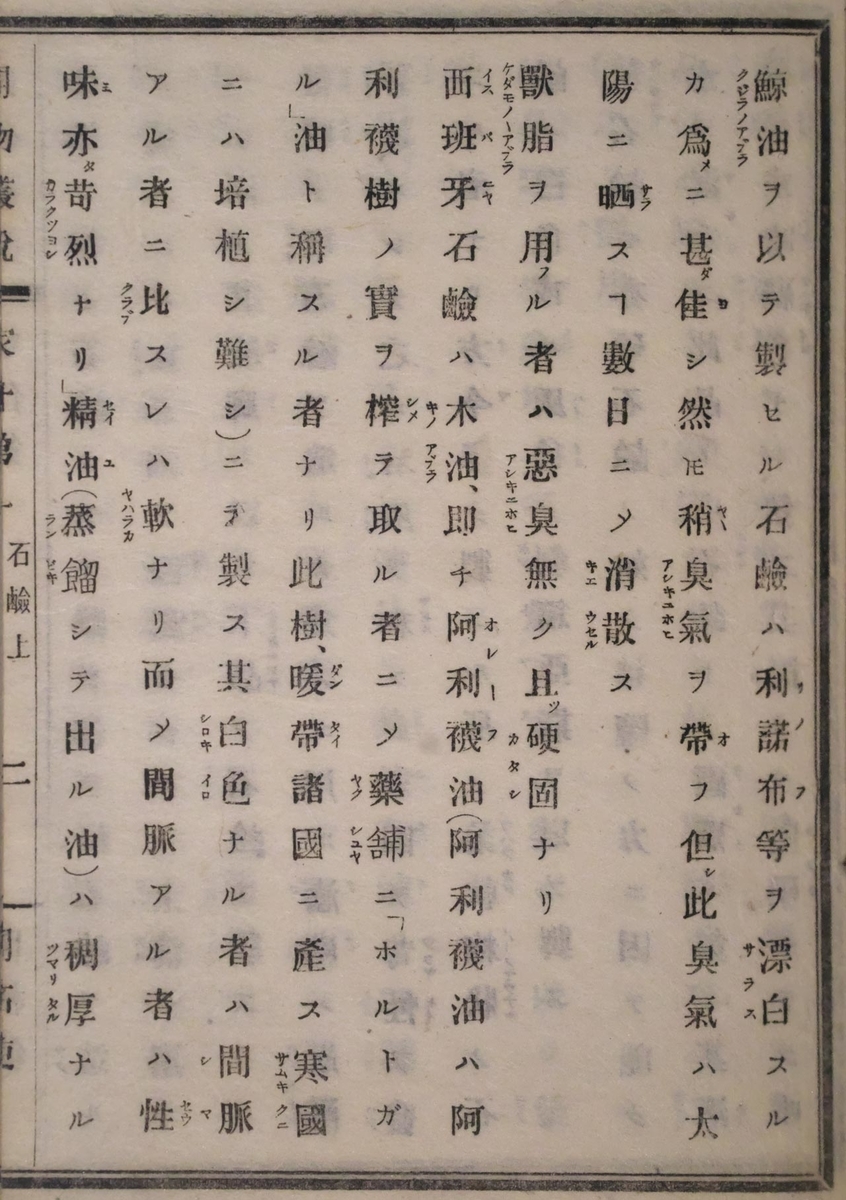 鯨油ヲ以テ製セル石鹼ハ利諾布等ヲ漂白スル
カ爲ニ甚佳シ然ㇳモ稍臭氣ヲ帶フ但此臭氣ハ太
陽ニ晒スヿ數日ニメ消散ス
獸脂ヲ用ル者ハ惡臭無ク且硬固ナリ
西班牙石鹼ハ木油、即チ阿利襪油(阿利襪油ハ阿
利襪樹ノ實ヲ榨テ取ル者ニメ藥舗ニ「ホルトガ
ル」油ト稱スル者ナリ此樹、暖帶諸國ニ產ス寒國
ニハ培植シ難シ)ニテ製ス其白色ナル者ハ間脈
アル者ニ比スレハ軟ナリ而メ間脈アル者ハ性
味亦苛烈ナリ」精油(蒸餾シテ出ル油)ハ稠厚ナル
石鹼上
二